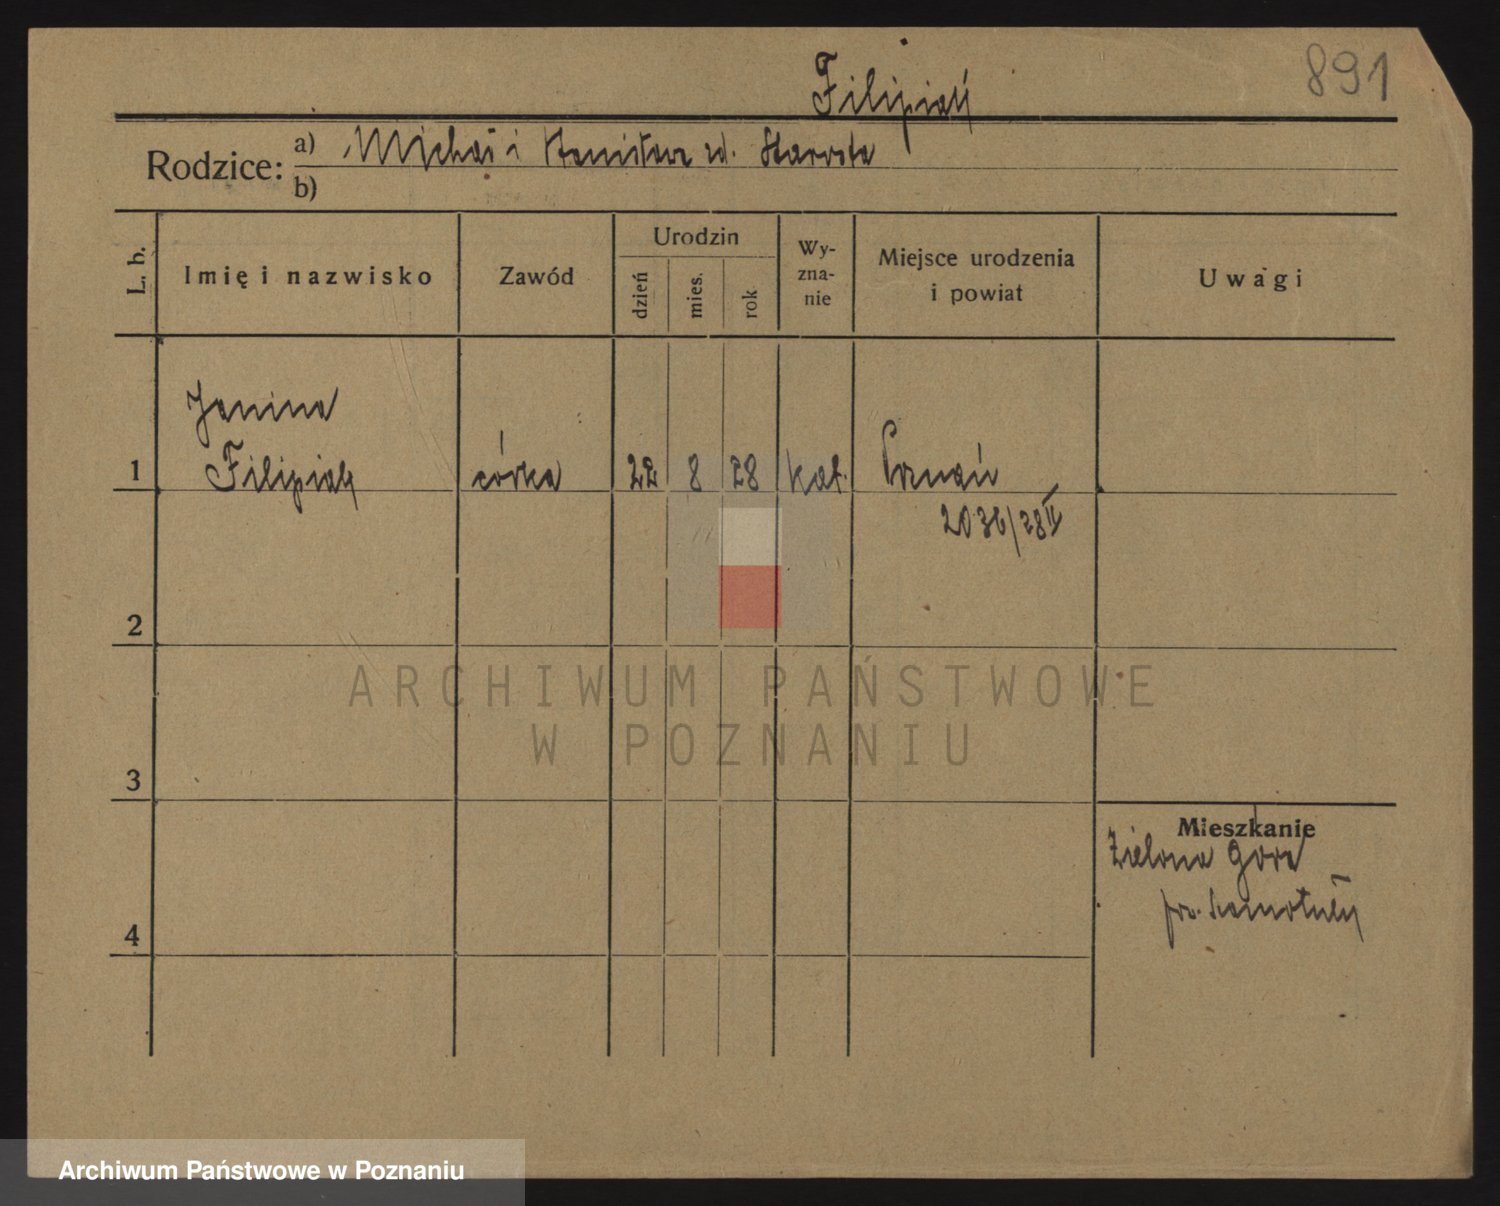 891
Filipiak
Rodzice: a) Michał i Stanisława zd. Starosta
b)
L. b.
Imię i nazwisko
Zawód
Urodzin
dzień
mies.
rok
Wy-
zna-
nie
Miejsce urodzenia
i powiat
Uwagi
Janina
1 Filipiak córka 22 8 28 kat. Poznań
2036/28 II
2
ARCHIWUM PAŃSTWOWE
W POZNANIU
3
Mieszkanie
Zielona Góra
4
Archiwum Państwowe w Poznaniu